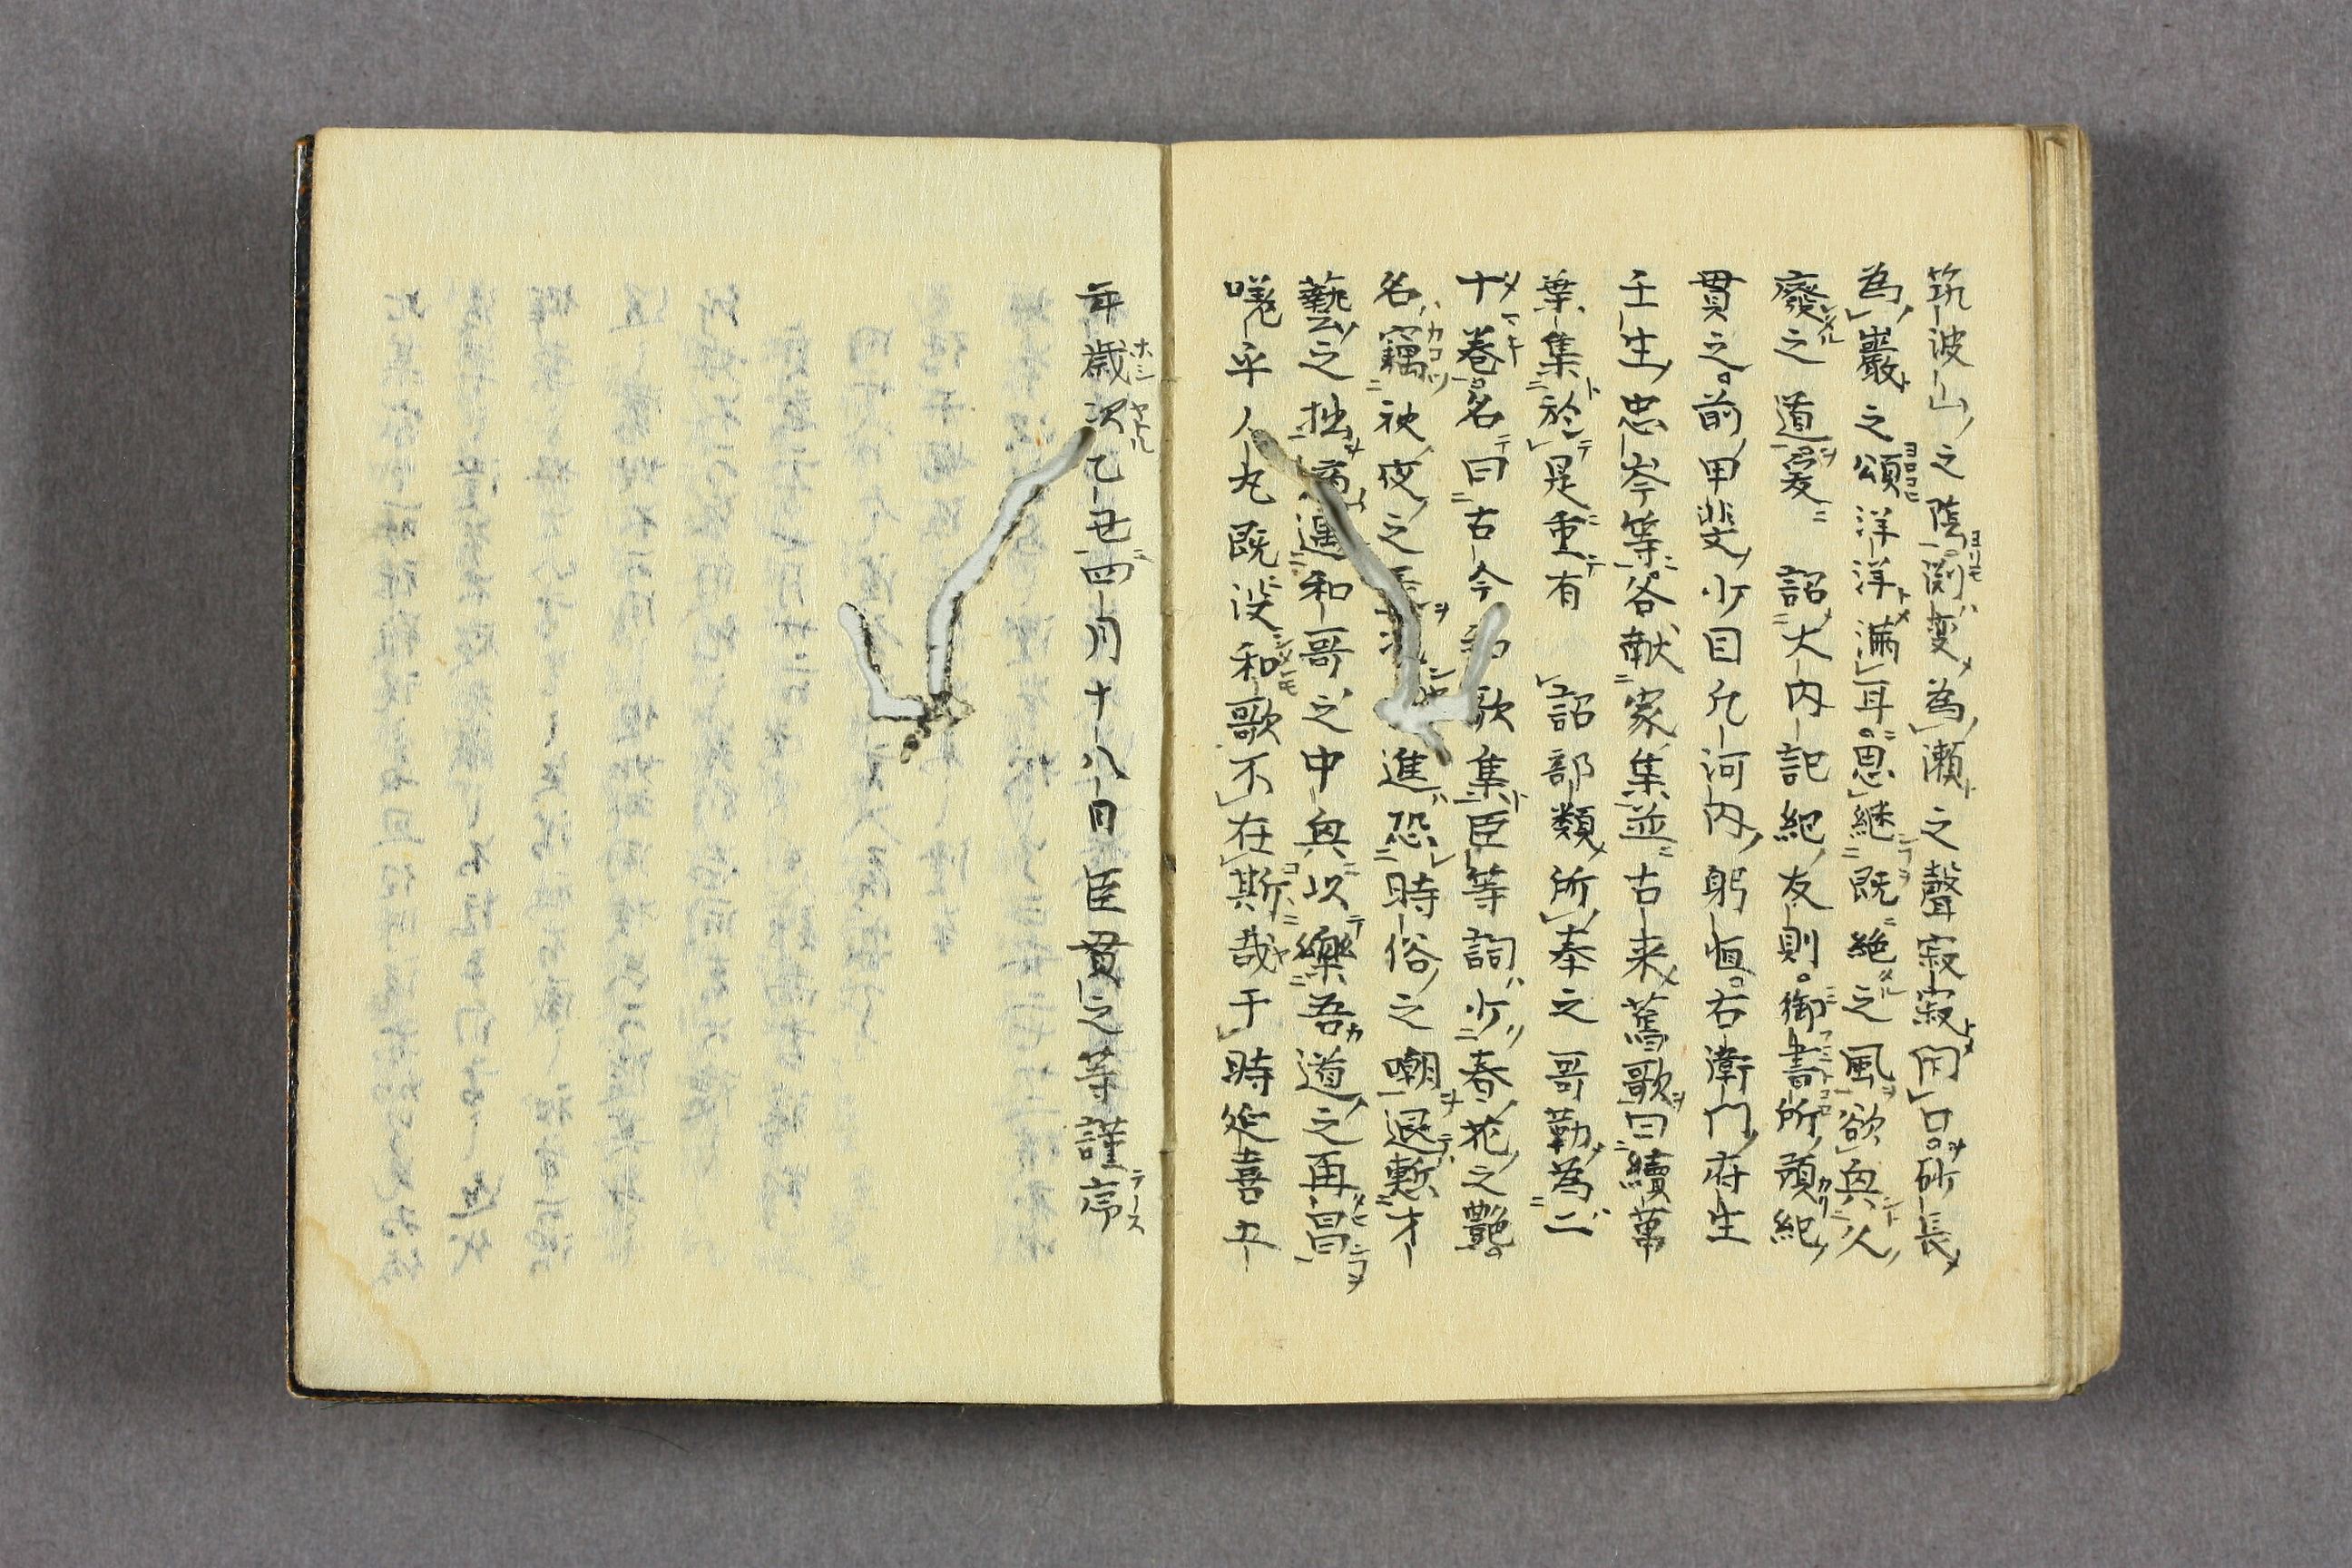 筑波山之陰淵變為瀬之聲寂寂閇口砂長
為巖之頌洋洋滿耳思継既絶之風欲興久
廢之道爰　詔大内記紀友則御書所預紀
貫之前甲斐少目凡河内躬恒右衛門府生
壬生忠岑等各献家集並古来舊歌曰續萬
葉集於是重有　詔部類所奉之哥勒為二
十巻名曰古今和歌集臣等詞少春花之艶
名竊秋夜之進恐時俗之嘲退慙才
藝之拙適遇和哥之中興以樂吾道之再昌
嗟乎人丸既没和歌不在斯哉于時延喜五
年歳次乙丑四月十八日臣貫之等謹序